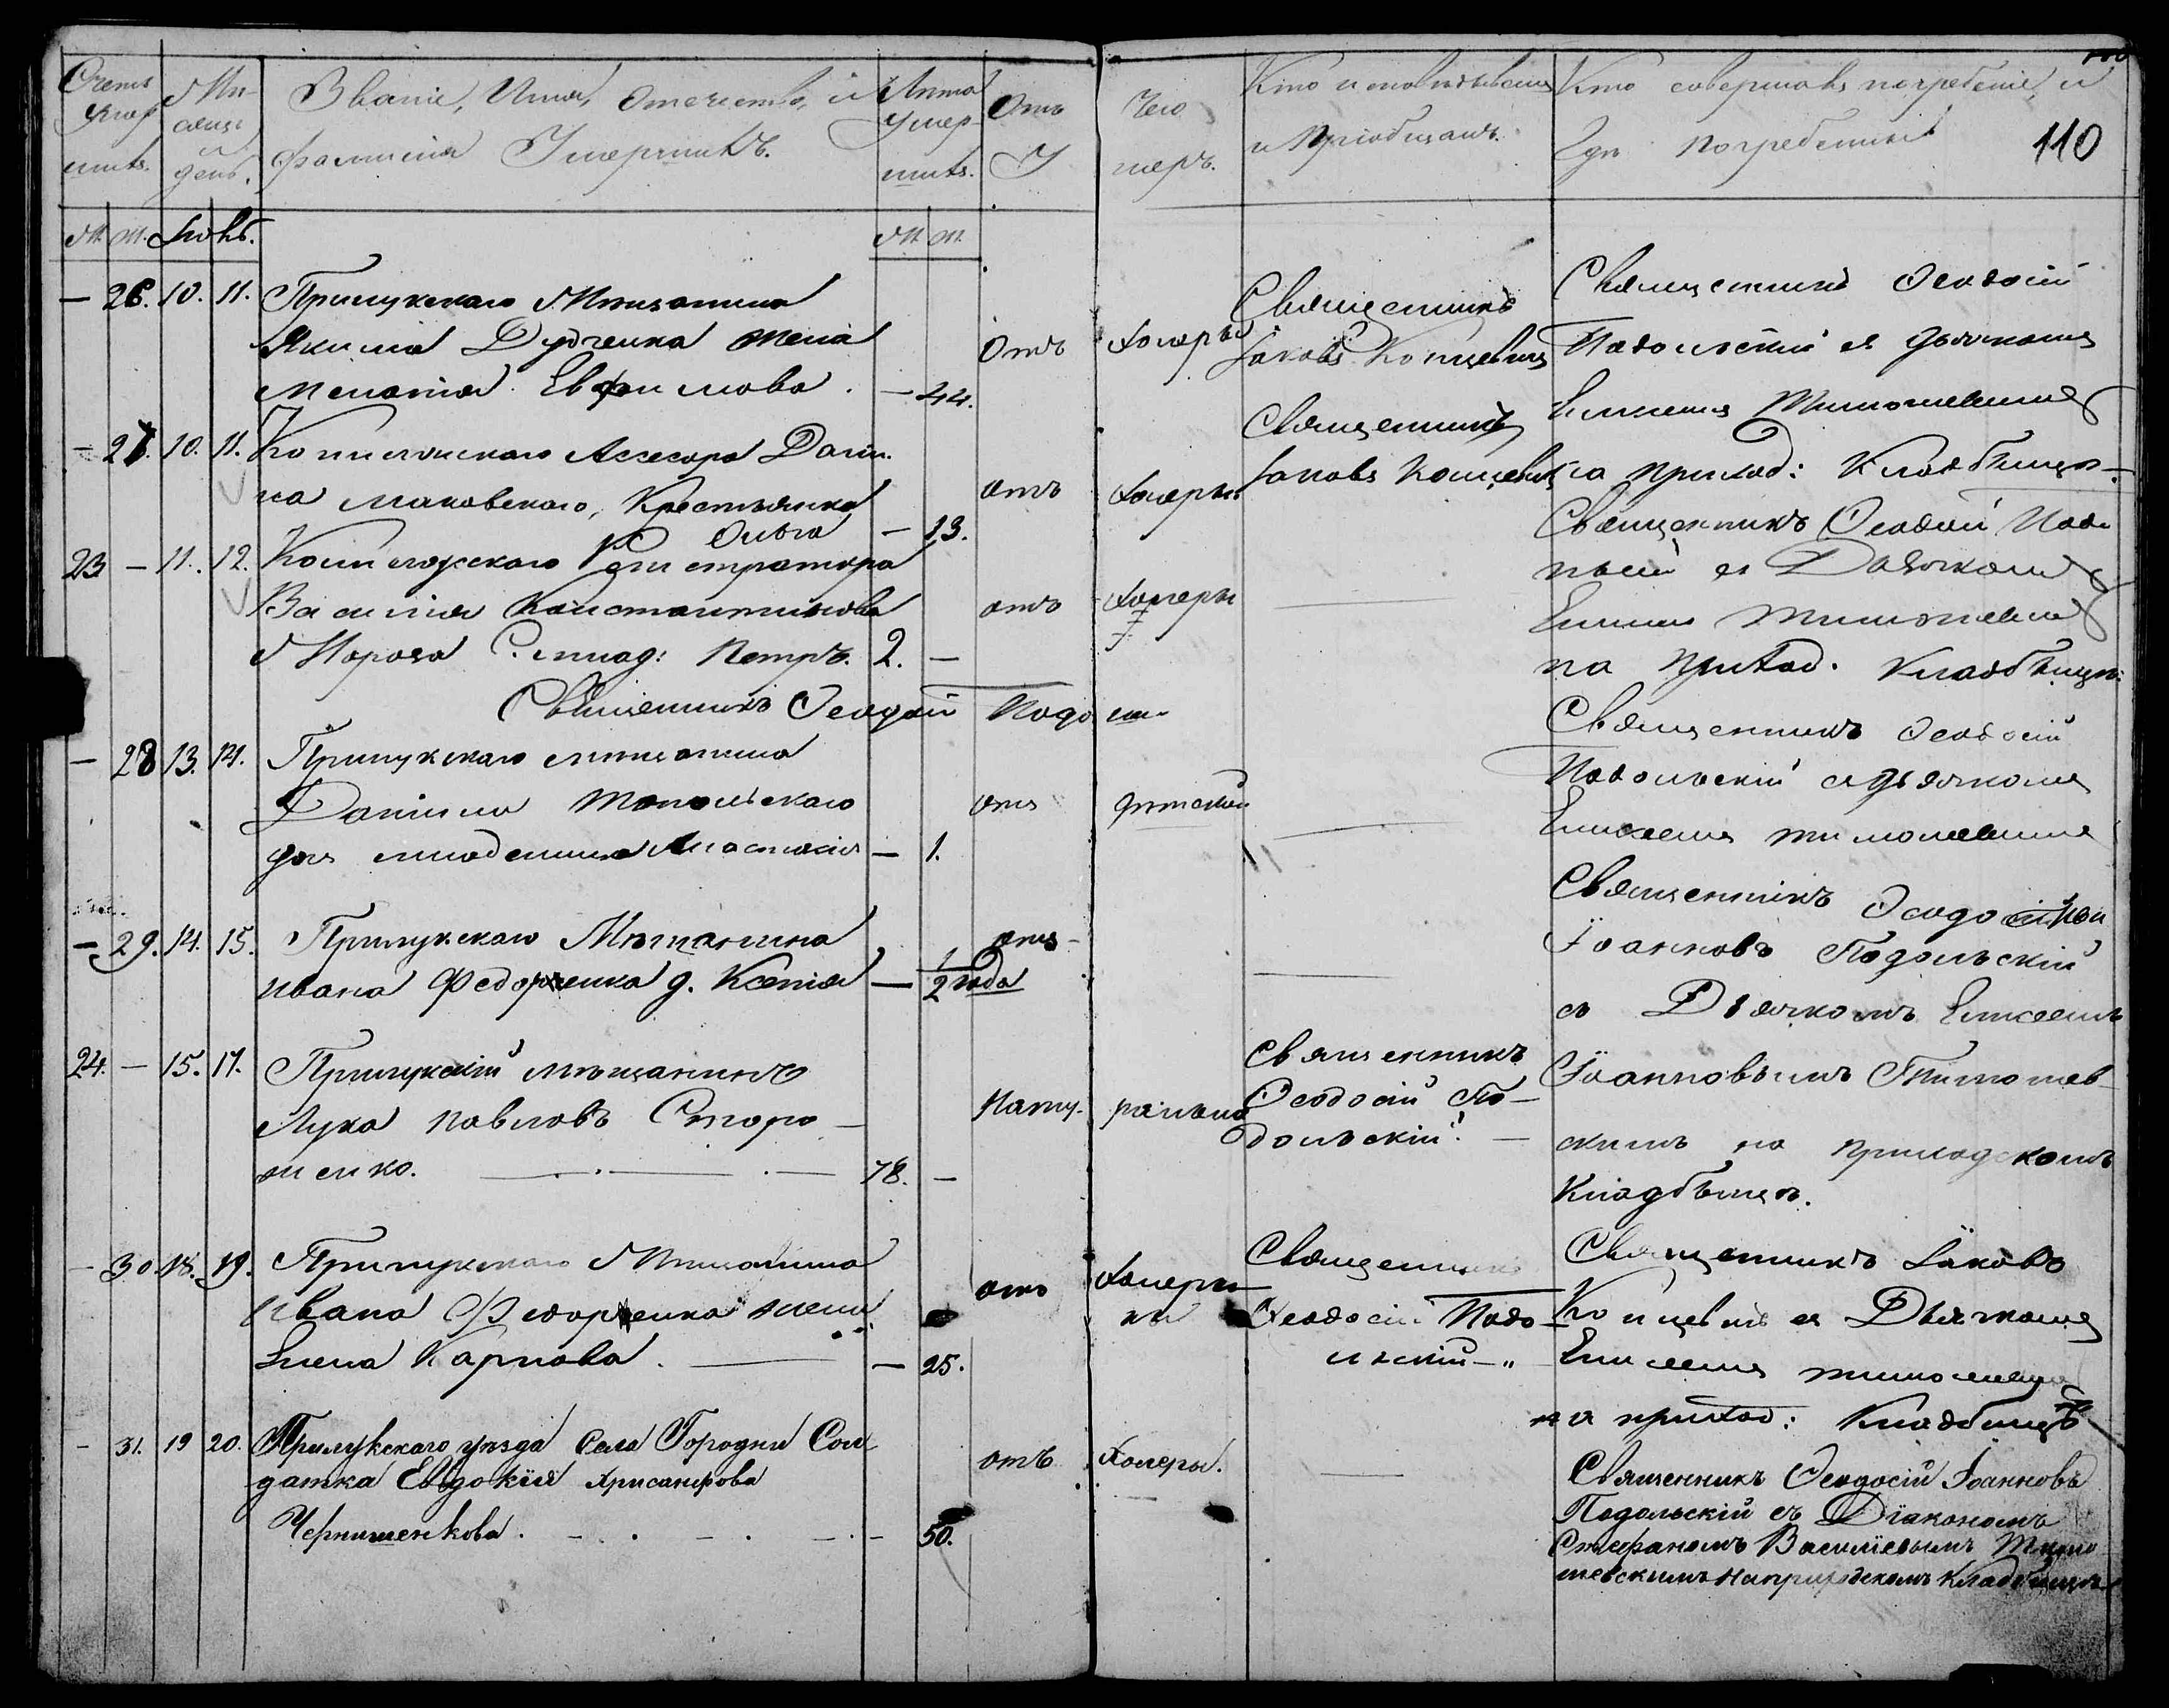 Счетъ умершихъ.
Мѣсяцъ и день.
Званіе, Имя, Отечество, и фамилія Умершихъ.
Лѣта Умершихъ.
Отъ Чего Умеръ.
Кто исповѣдывалъ и Пріобщалъ.
Кто совершалъ погребеніе, и гдѣ Погребенны
110
М. Ж.
М. Ж.
— 26. 10. 11. Прилукскаго Мѣщанина
Якима Дудченка жена
Меланія Евфимова. — 44.
Отъ Холеры
Священникъ
Іаковъ
Священникъ Ѳеодосій
Подольскій съ Дьячкомъ
— 27. 10. 11. Ассесора Дани-
ла Маковскаго, Крестьянка
Ольга — 13.
отъ Холеры
Священникъ
Іаковъ
на Приход: Кладбищѣ.
23 — 11. 12. Регистратора
Василія Константинова
Мороза С. млад: Петръ. 2. —
отъ Холеры
Священникъ Ѳеодосій
съ Дьячкомъ
на Приход. Кладбищѣ:
Священникъ Ѳеодосій Подо
— 28 13. 14. Прилукскаго мѣщанина
Даніила
дочь младеница Анастасія — 1.
отъ дѣтской
Священникъ Ѳеодосій
Подольскій съ Дьячкомъ
Елисеемъ
— 29. 14. 15. Прилукскаго Мѣщанина
Ивана Федорченка д. Ксенія — 1/2 года
отъ
Священникъ Ѳеодосій
Іоанновъ Подольскій
съ Дьячкомъ Елисеемъ
24. — 15. 17. Прилукскій мѣщанинъ
Лука Павловъ Сторо-
женко. — 78. —
Натурально
Священникъ
Ѳеодосій По-
дольскій. —
Іоанновымъ Тимошев-
скимъ на приходскомъ
Кладбищѣ.
— 30. 18. 19. Прилукскаго Мѣщанина
Ивана Федорченка жена
Елена Карпова. — 25.
отъ Холеры
Священникъ
Ѳеодосій Подо-
льскій —"
Священникъ Іаковъ
съ Дьячкомъ
Елисеемъ
на приход: Кладбищѣ
— 31. 19 20. Прилукскаго уѣзда Села Городни Сол-
датка Евдокія Хрисанфова
Чернишенкова. — 50.
отъ Холеры.
Священникъ Ѳеодосій Іоанновъ
Подольскій съ Діакономъ
Стефаномъ Василіевымъ Тимо
шевскимъ на приходскомъ кладбищѣ